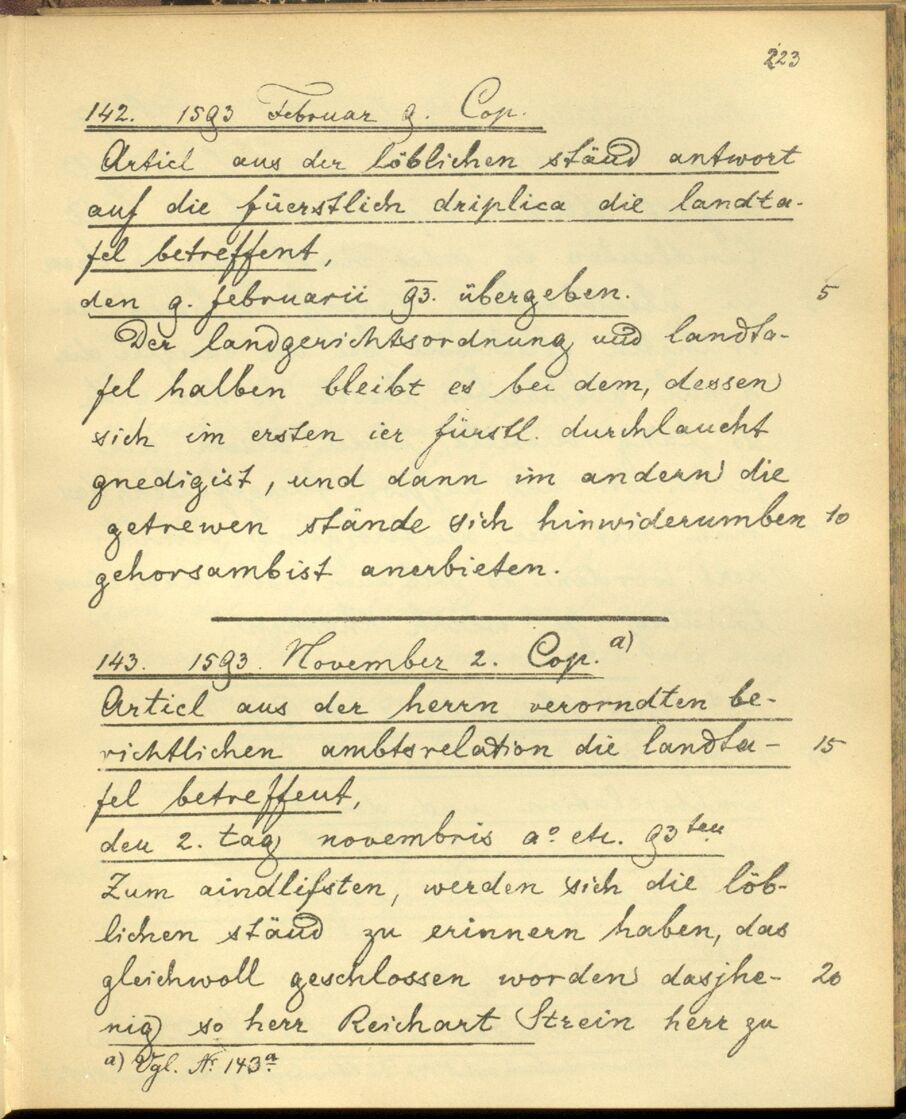 223
142. 1593 Februar 9. Cop.
Articl aus der löblichen ständ antwort
auf die füerstlich driplica die landta-
fel betreffent,
den 9. februarii 93. übergeben. 5
Der landgerichtsordnung und landta-
fel halben bleibt es bei dem, dessen
sich im ersten ier fürstl. durchlaucht
gnedigist, und dann im andern die
getrewen stände sich hinwiderumben 10
gehorsambist anerbieten.
143. 1593. November 2. Cop. a)
Articl aus der herrn verorndten be-
richtlichen ambtsrelation die landta- 15
fel betreffent,
den 2. tag novembris aº etc. 93ten
Zum aindlifsten, werden sich die löb-
lichen ständ zu erinnern haben, das
gleichwoll geschlossen worden dasjhe- 20
nig so herr Reichart Strein herr zu
a) Vgl. Nr. 143a